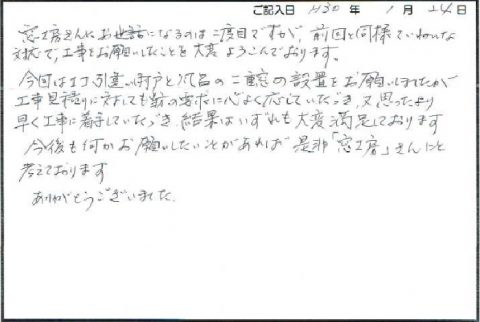 ご記入日 H30 年 1 月 24 日
窓工房さんにお世話になるのは二度目ですが、前回と同様ていねいな
対応で、工事をお願いしたことを大変よろこんでおります。
今回は 引違い雨戸と 二重窓の設置をお願いしましたが
工事見積りに対しても 要求に心よく応じていただき、又思ったより
早く工事に着手していただき、結果はいずれも大変満足しております
今後も何かお願いしたいことがあれば是非「窓工房」さんにと
考えております
ありがとうございました。